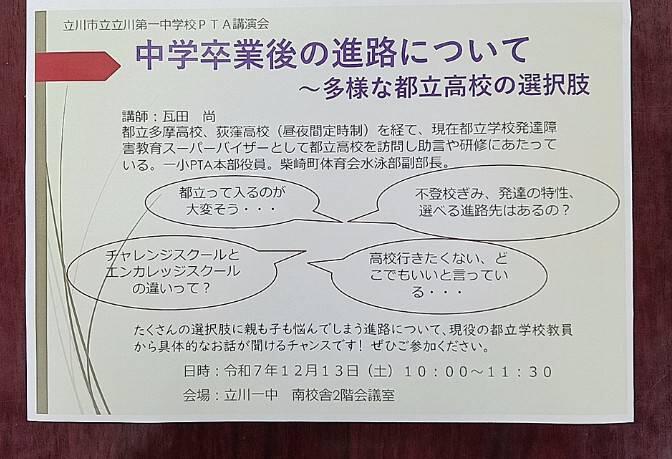 立川市立立川第一中学校ＰＴＡ講演会
中学卒業後の進路について
～多様な都立高校の選択肢
講師：瓦田　尚
都立多摩高校、荻窪高校（昼夜間定時制）を経て、現在都立学校発達障
害教育スーパーバイザーとして都立高校を訪問し助言や研修にあたって
いる。一小PTA本部役員。柴崎町体育会水泳部副部長。
都立って入るのが
大変そう・・・
不登校ぎみ、発達の特性、
選べる進路先はあるの？
チャレンジスクールと
エンカレッジスクール
の違いって？
高校行きたくない、ど
こでもいいと言ってい
る・・・
たくさんの選択肢に親も子も悩んでしまう進路について、現役の都立学校教員
から具体的なお話が聞けるチャンスです！ぜひご参加ください。
日時：令和７年１２月１３日（土）１０：００～１１：３０
会場：立川一中　南校舎2階会議室